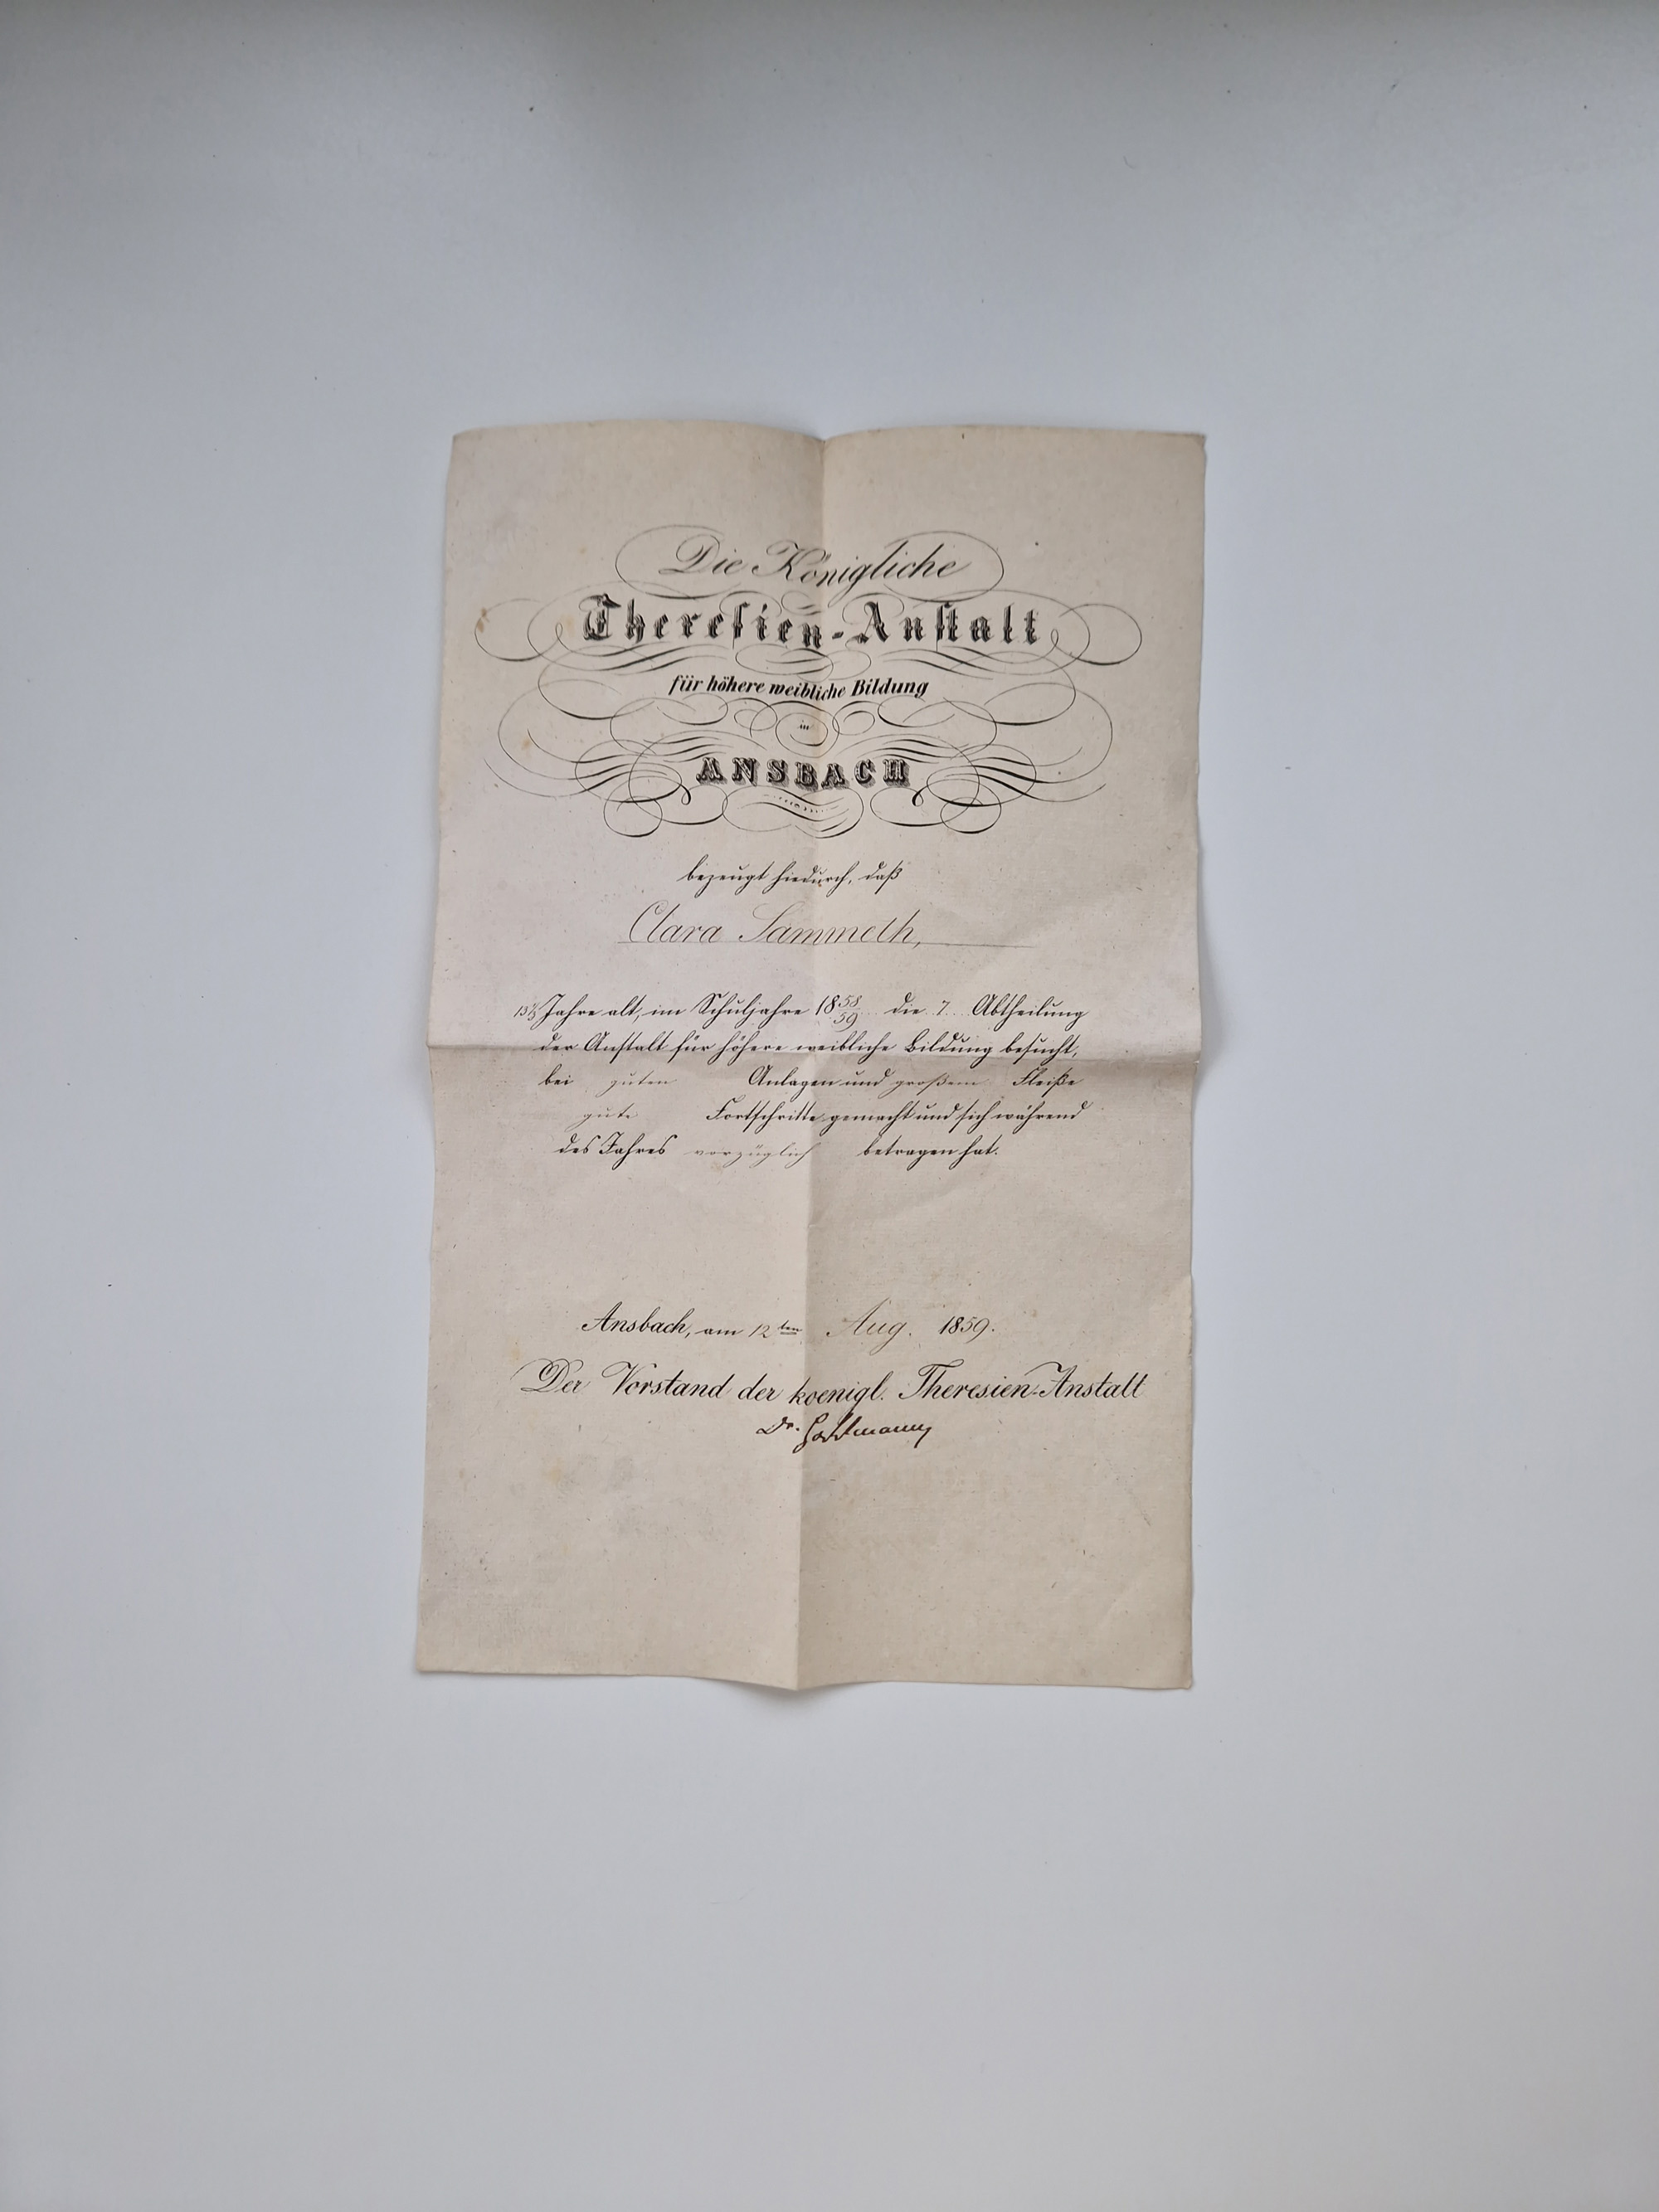 Die Königliche
Theresien-Anstalt
für höhere weibliche Bildung
in
ANSBACH
bezeugt hiedurch, daß
Clara Sammeth,
Jahre alt, im Schuljahre 1858/59 die 7. Abtheilung
der Anstalt für höhere weibliche Bildung besucht,
bei guten Anlagen und großem Fleiße
gute Fortschritte gemacht und sich während
des Jahres vorzüglich betragen hat.
Ansbach, am 12ten Aug. 1859.
Der Vorstand der koenigl. Theresien-Anstalt
Dr.